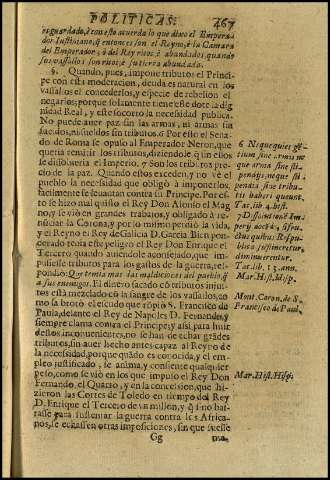 POLITICAS. 467
esguardado, è con esto acuerda lo que dixo el Empera
dor Iustiniano, q̃ entonces son el Reyno, è la Camara
del Emperador, ò del Rey ricos, è abundados, quando
sus vassallos son ricos, è su tierra abundada.
§. Quando, pues, impone tributos el Princi-
pe con esta moderacion, deuda es natural en los
vassallos el concederlos, y especie de rebelion el
negarlos; porque solamente tiene este dote la dig
nidad Real, y este socorro la necesidad publica.
No puede auer paz sin las armas, ni armas sin
sueldos, ni sueldos sin tributos. 6 Por esto el Sena-
do de Roma se opuso al Emperador Neron, que
queria remitir los tributos, diziendole q̃ sin ellos
se dissolueria el Imperio, 7 son los tributos pre-
cio de la paz. Quando estos exceden, y no vè el
pueblo la necessidad que obligò à imponerlos,
facilmente se leuantan contra su Principe. Por es-
to se hizo mal quisto el Rey Don Alonso el Mag
no, y se viò en grandes trabajos, y obligado à re-
nunciar la Corona, y por lo mismo perdiò la vida,
y el Reyno el Rey de Galicia D. Garcia Bien pon-
cerado tenia este peligro el Rey Don Enrique el
Tercero quando auiendole aconsejado, que im-
pusiesse tributos para los gastos de la guerra, res-
pondiò: Que temia mas las maldiciones del pueblo, q̃
a sus enemigos. El dinero sacado cõ tributos injus
tos està mezclado cõ la sangre de los vassallos, co
mo la brotò el escudo que rõpiò S. Francisco de
Paula, delante el Rey de Napoles D. Fernando, y
siempre clama contra el Principe; y assi, para huir
destos inconuenientes, no se han de echar grãdes
tributos, sin auer hecho antes capaz al Reyno de
la necessidad, porque quãdo es conocida, y el em-
pleo justificado, se anima, y consiente qualquier
peso, como se viò en los que impuso el Rey Don
Fernando, el Quarto, y en la concession, que hi-
zieron las Cortes de Toledo en tiempo del Rey
D. Enrique el Tercero de vn millon, y q̃ si no bas-
tasse para sustentar la guerra contra los Africa-
nos, se echassen otras imposiciones, sin que fuesse
Gg
6 Nequequies gẽ
tium sine armis, ne
que arma sine sti-
pendijs, neque sti-
pendia sine tribu-
tis haberi queunt.
Tac. lib. 4. hist.
7 Dissolutionẽ Im
perij docẽs, si fru-
ctus quibus Respu-
blica sustineretur,
diminuerentur.
Tac. lib. 13. ann.
Mar. H. s. Hisp.
Mont. Coron. de S.
Francisco de Paul.
Mar. Hist. Hisp.